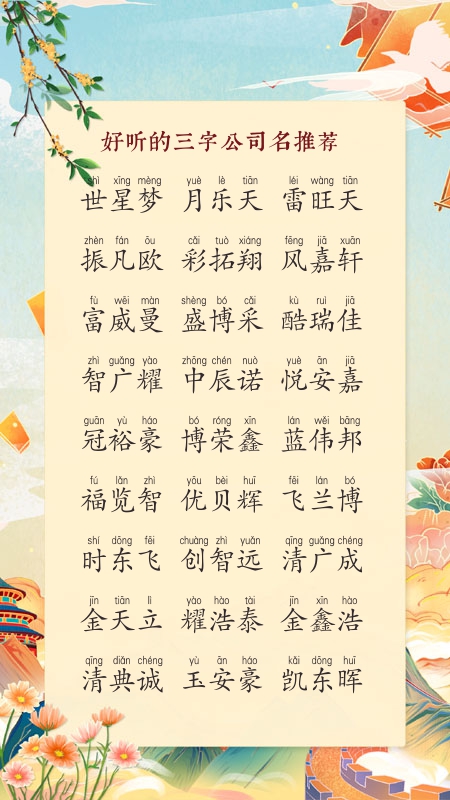 好听的三字公司名推荐
shì xīng mèng yuè lè tiān léi wàng tiān
世星梦 月乐天 雷旺天
zhèn fán ōu cǎi tuò xiáng fēng jiā xuān
振凡欧 彩拓翔 风嘉轩
fù wēi màn shèng bó cǎi kù ruì jiā
富威曼 盛博采 酷瑞佳
zhì guǎng yào zhōng chén nuò yuè ān jiā
智广耀 中辰诺 悦安嘉
guān yù háo bó róng xīn lán wěi bāng
冠裕豪 博荣鑫 蓝伟邦
fú lǎn zhì yōu bèi huī fēi lán bó
福览智 优贝辉 飞兰博
shí dōng fēi chuàng zhì yuǎn qīng guǎng chéng
时东飞 创智远 清广成
jīn tiān lì yào hào tài jīn xīn hào
金天立 耀浩泰 金鑫浩
qīng diǎn chéng yù ān háo kǎi dōng huī
清典诚 玉安豪 凯东晖